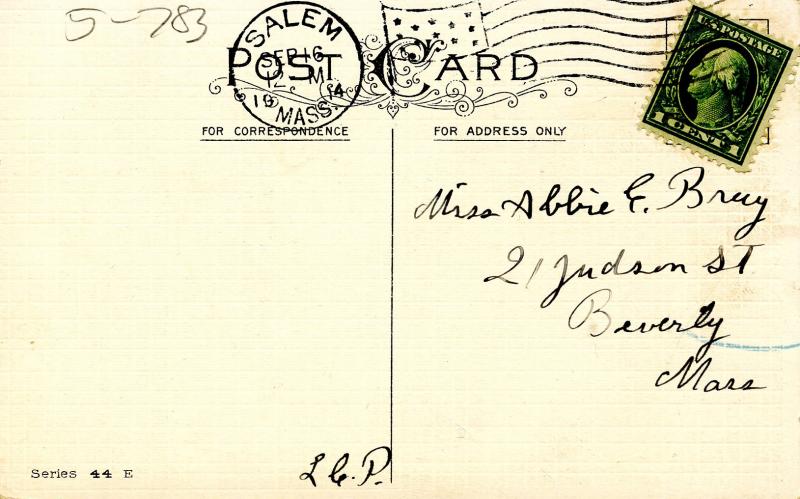 5-783
SALEM
SEP 16
12 M
19 14
MASS.
POST CARD
U.S. POSTAGE
1 CENT 1
FOR CORRESPONDENCE
FOR ADDRESS ONLY
Miss Abbie E.
21 Judson St
Beverly
Mass
L.E.P.
Series 44 E